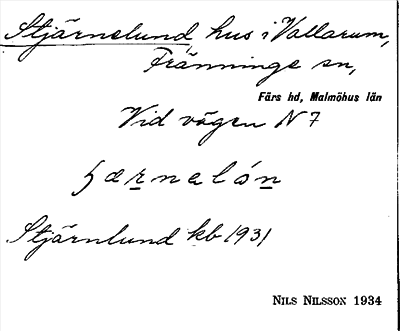 Stjärnelund, hus i Vallarum,
Fränninge sn,
Färs hd, Malmöhus län
Vid vägen N 7
Stjärnlund kb 1931
NILS NILSSON 1934